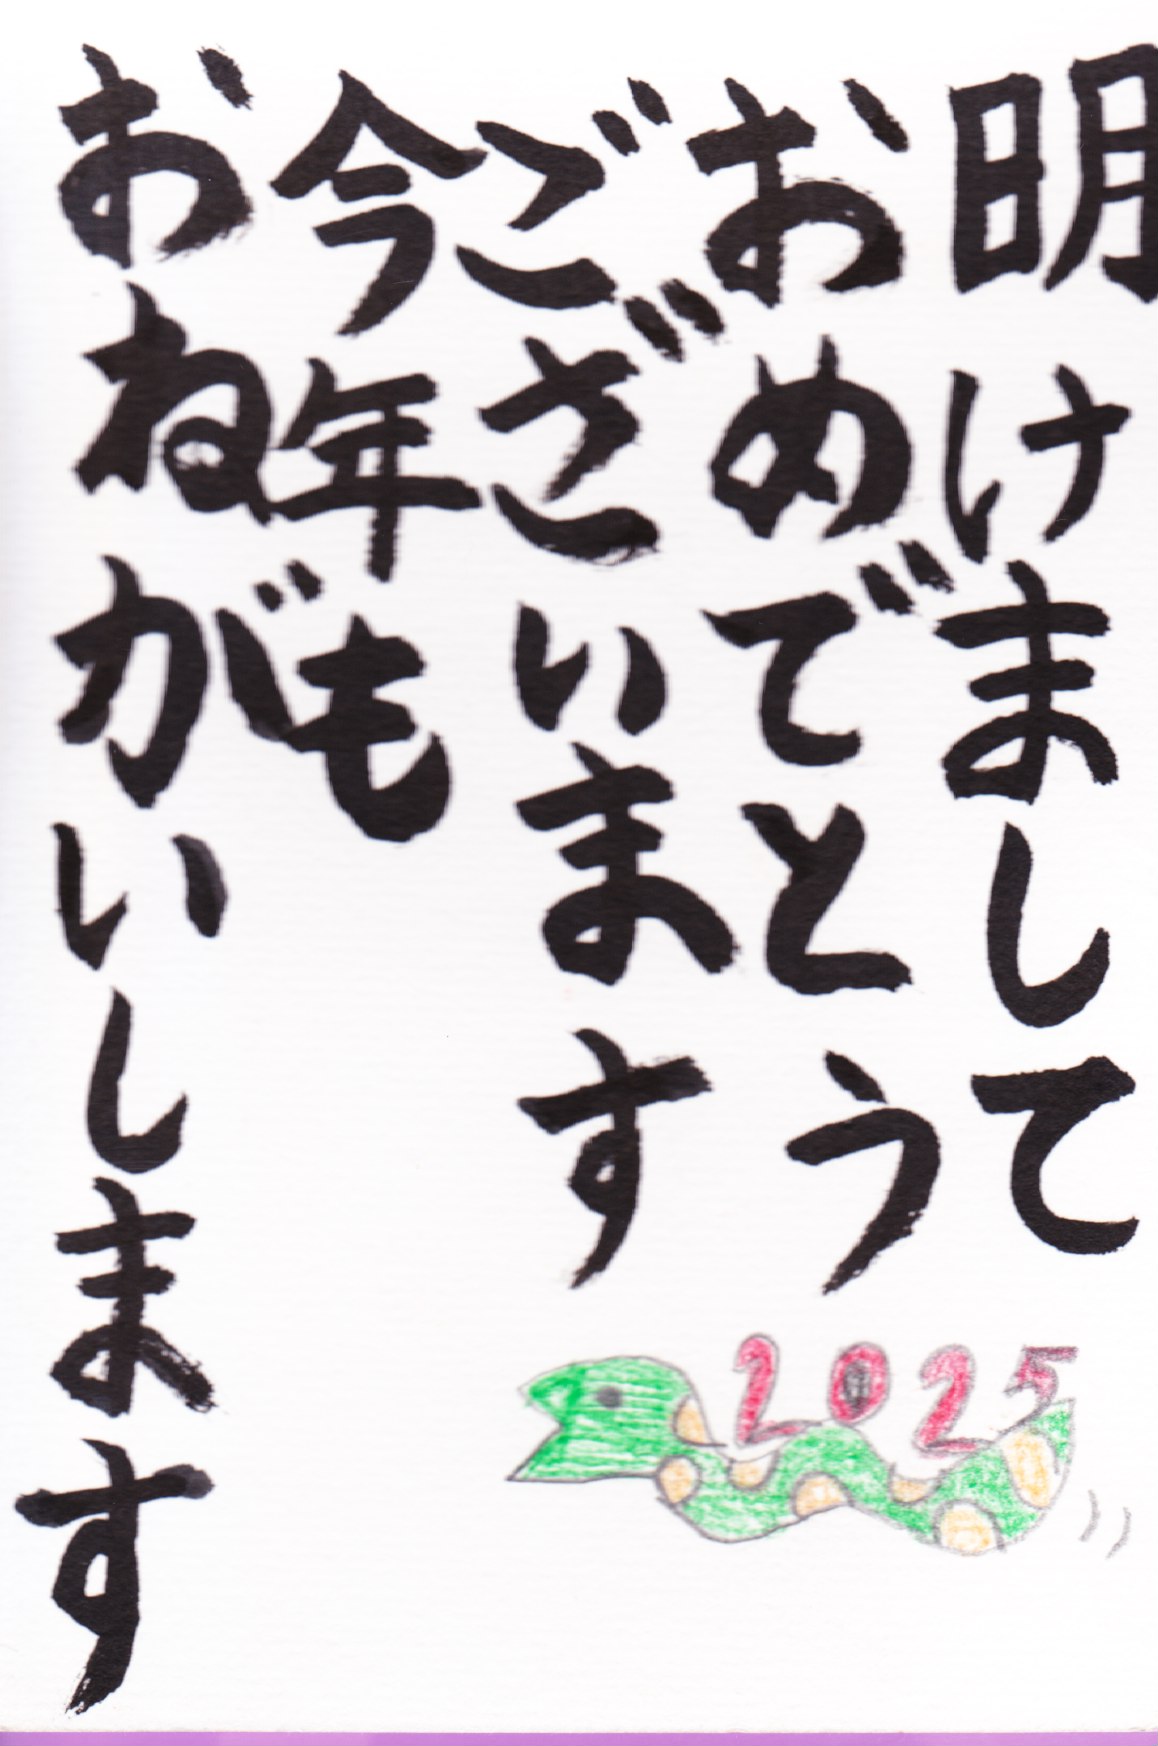 明けまして
おめでとう
ございます
今年も
おねがいします
2025